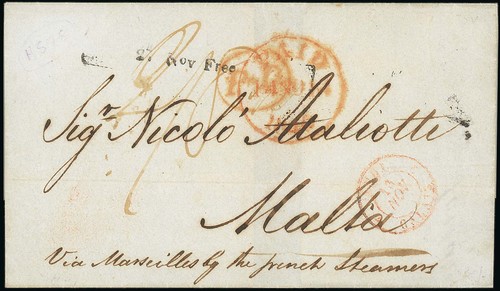 27 Nov Free
PAID
Sigr. Nicoló Ataliotti
Malta
Via Marseilles by the french Steamers